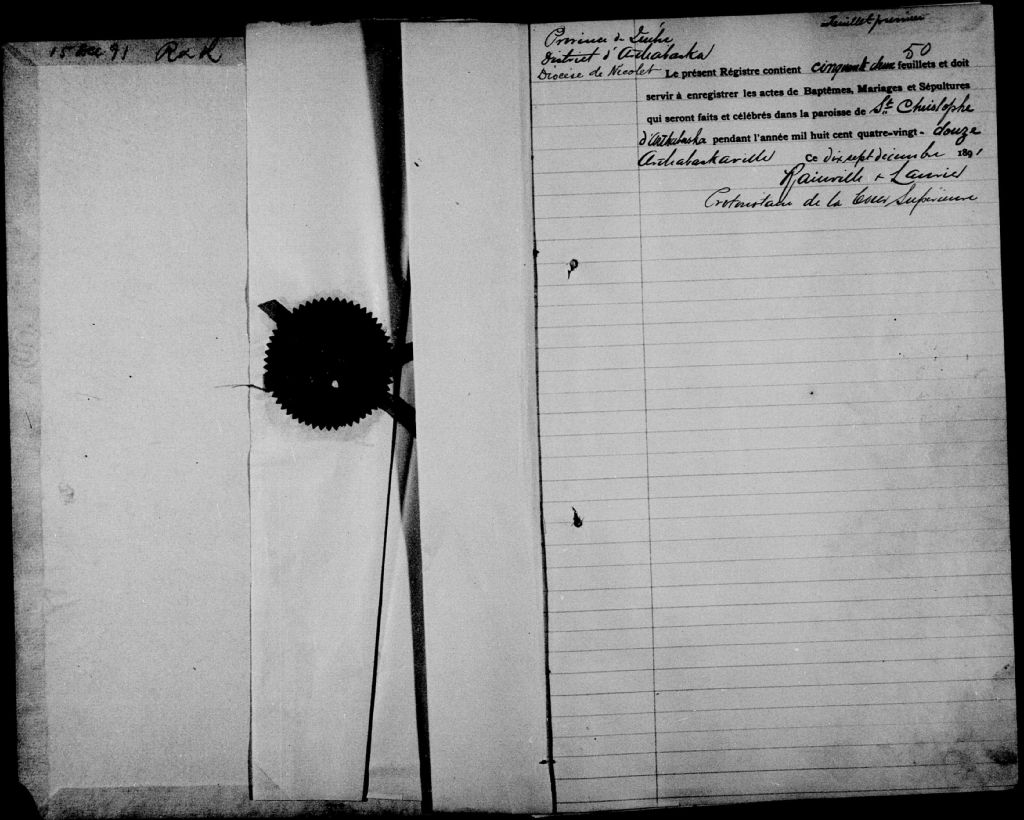 15 Dec 91 R & L
Feuillet premier
Province de Québec
District d'Arthabaska
Diocèse de Nicolet
50
Le présent Régistre contient cinquante deux feuillets et doit
servir à enregistrer les actes de Baptêmes, Mariages et Sépultures
qui seront faits et célébrés dans la paroisse de St. Christophe
d'Arthabaska pendant l'année mil huit cent quatre-vingt- douze
Arthabaskaville Ce dix sept décembre 1891
Rainville & Laurier
Protonotaire de la Cour Supérieure